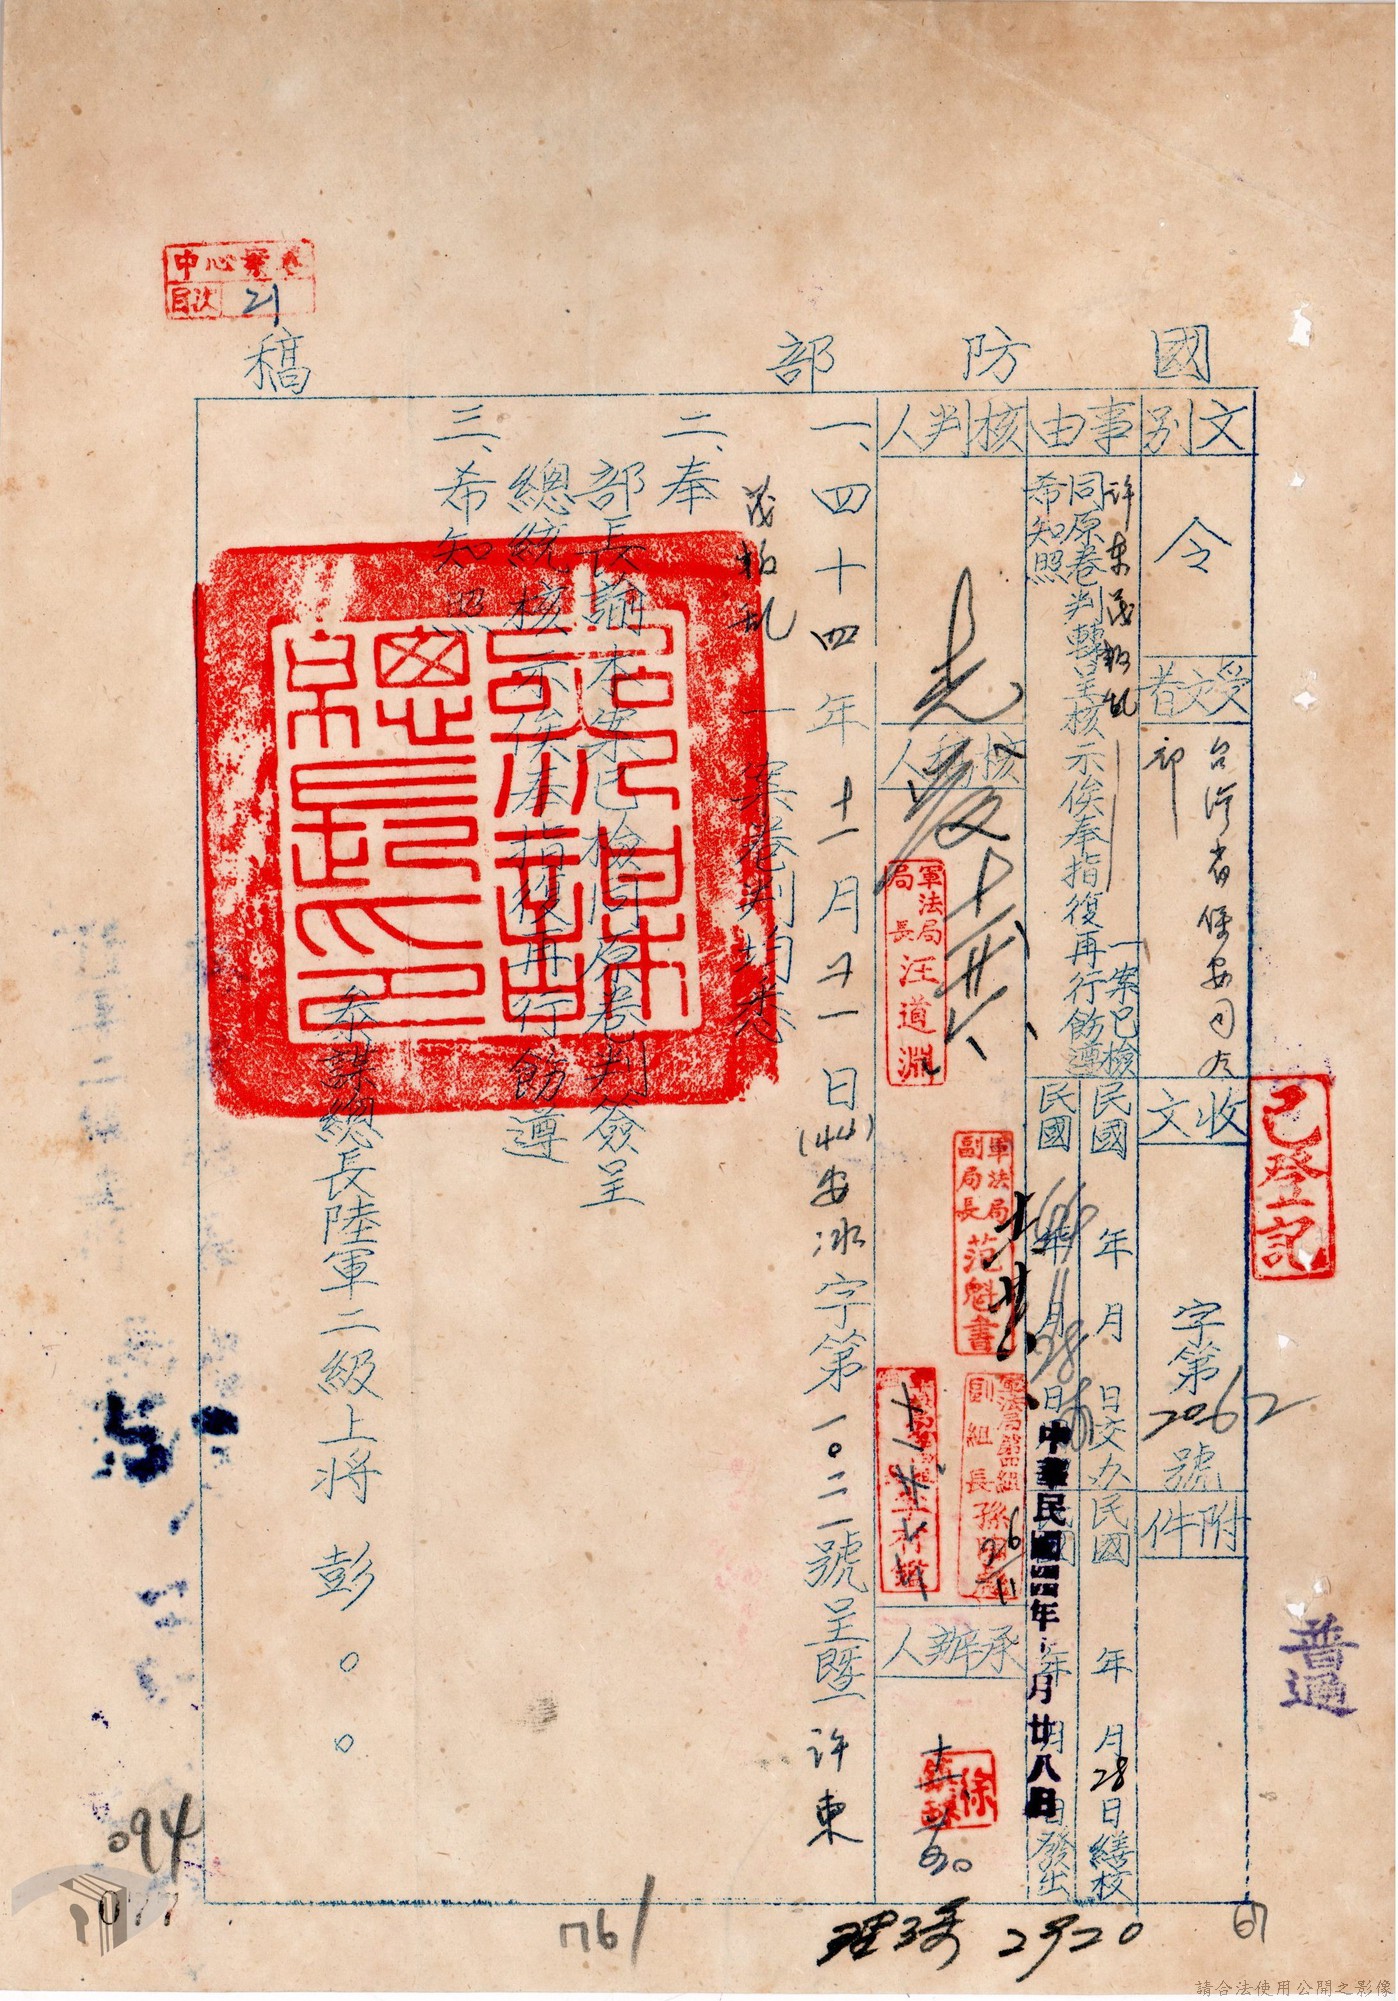 中心案卷
目次 21
國防部稿
文別
令
受文者
台灣省保安司令
部
收文
字第2062號
附件
事由
許東茂叛亂一案已檢
同原卷判轉呈核示俟奉指復再行飭遵
希知照
民國 年 月 日交办
民國 年 月28日繕核
民國44年11月28日
年 月 日發出
中華民國四四年 月廿八日
核判人
核稿人
軍法局局長 汪道淵
軍法局副局長 范魁書
軍法局第四組
副組長 孫
承辦人
徐
一、四十四年十一月廿一日(44)安冰字第一〇二一號呈暨許東
茂叛亂一案卷判均悉
二、奉
部長諭本案已檢同原卷判簽呈
總統核示俟奉指復再行飭遵
三、希知照
參謀總長陸軍二級上將彭〇〇
已登記
普通
094
077
761
2920
67
請合法使用公開之影像